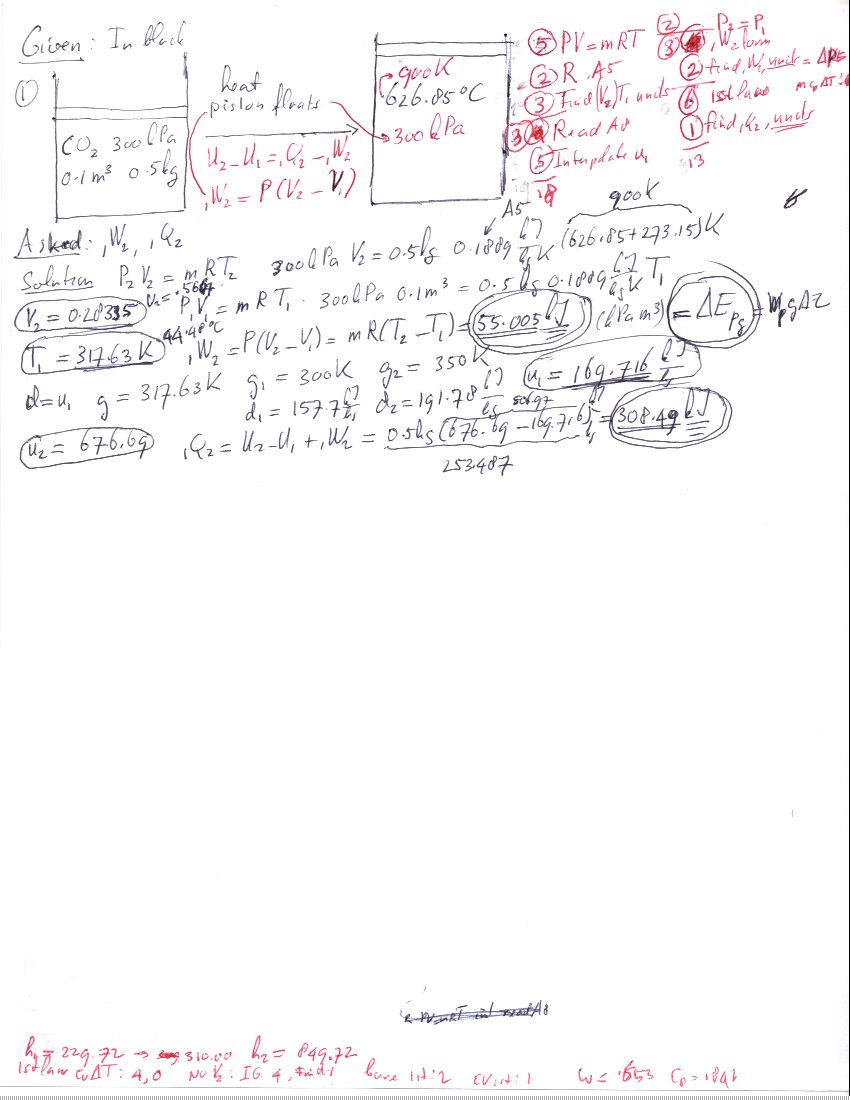 Given: In black
①
CO₂ 300 kPa
0.1 m³ 0.5 kg
heat
piston floats
U₂ – U₁ = ₁Q₂ – ₁W₂
₁W₂ = P(V₂ – V₁)
900K
626.85°C
300 kPa
⑤ PV = mRT
② R A5
③ Find (V₂) T₁ units
③ Read A8
⑤ Interpolate u₁
18
② P₂ = P₁
③ ₁W₂ form
② find ₁W₂, units = ΔPE
⑥ 1st law mcₚΔT:
① find ₁Q₂, units
13
Asked: ₁W₂, ₁Q₂
A5
900K
Solution P₂V₂ = mRT₂ 300 kPa V₂ = 0.5 kg 0.1889 kJ/kg K (626.85+273.15)K
V₂ = 0.28335
P₁V₁ = mRT₁ . 300 kPa 0.1 m³ = 0.5 kg 0.1889 kJ/kg K T₁
T₁ = 317.63 K
44.48°C
₁W₂ = P(V₂ – V₁) = mR(T₂ – T₁) = 55.005 kJ (kPa m³) = ΔE_Pg = m_p g ΔZ
d = u₁ g = 317.63K g₁ = 300K g₂ = 350K u₁ = 169.716 kJ/kg
d₁ = 157.7 kJ/kg d₂ = 191.78 kJ/kg
506.97
u₂ = 676.69 ₁Q₂ = U₂ – U₁ + ₁W₂ = 0.5 kg (676.69 – 169.716) kJ/kg = 308.49 kJ
253.487
h₁ = 229.72 → 310.00 h₂ = 849.72
1st law cᵥΔT: 4,0 No V₂: IG 4, find 1 1st: 2 : 1 cᵥ = .653 cₚ = .842